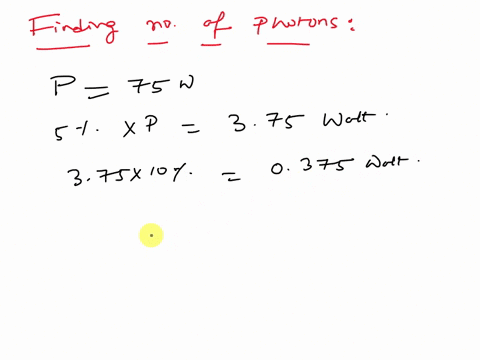 Finding no. of Photons:
P = 75 W
5 %. x P = 3.75 Watt.
3.75 x 10 %. = 0.375 Watt.